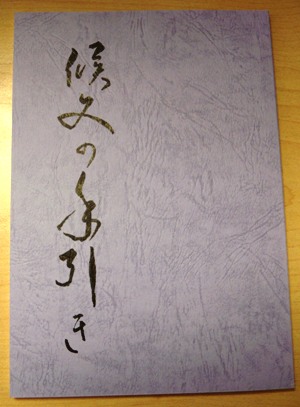 候文の手引き